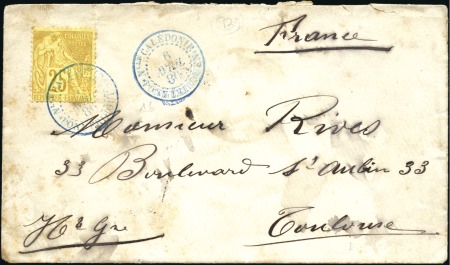 France
COLONIES
25
Nlle CALEDONIE
Monsieur Rives
33 Boulevard St Aubin 33
Hte Gne
Toulouse